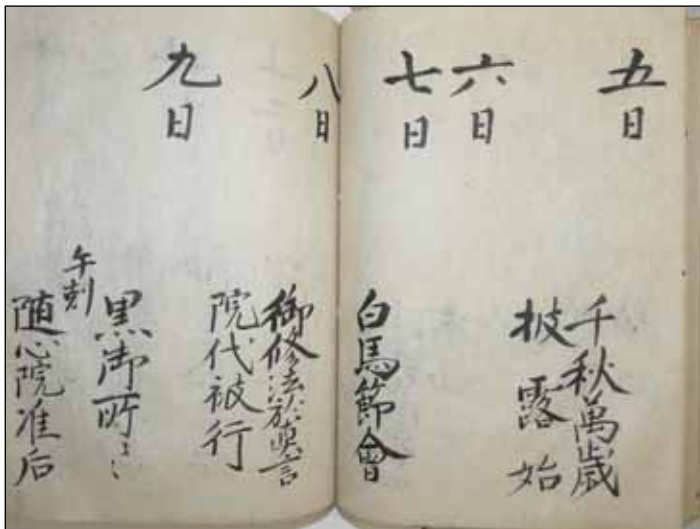 五日
千秋萬歳
披露始
六日
七日
白馬節會
八日
御修法於真言
院代被行
九日
黒御所ニ
午刻
随心院准后